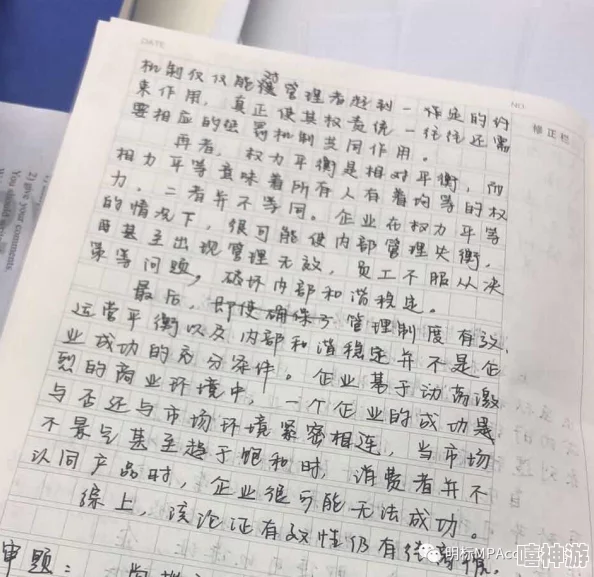 DATE
NO.
修正栏
机制仅仅能对管理者起到一定的约
束作用，真正使其权责统一往往还需
要相应的惩罚机制共同作用。
再者，权力平衡是相对平衡，而
相力平等意味着所有人有着均等的权
力，二者并不等同。企业在权力平等
的情况下，很可能使内部管理失衡，
甚至出现管理无效，员工不服从决
策等问题，破坏内部和谐稳定。
最后，即使确保了管理制度有效、
运营平衡以及内部和谐稳定并不是企
业成功的充分条件。企业基于动荡激
烈的商业环境中，一个企业的成功是
与否还与市场环境紧密相连，当市场
不景气甚至趋于饱和时，消费者并不
认同产品时，企业很可能无法成功。
综上，该论证有效性仍有待商榷。
审题：
2) give your comments
You should
明标MPAcc
嘻神游